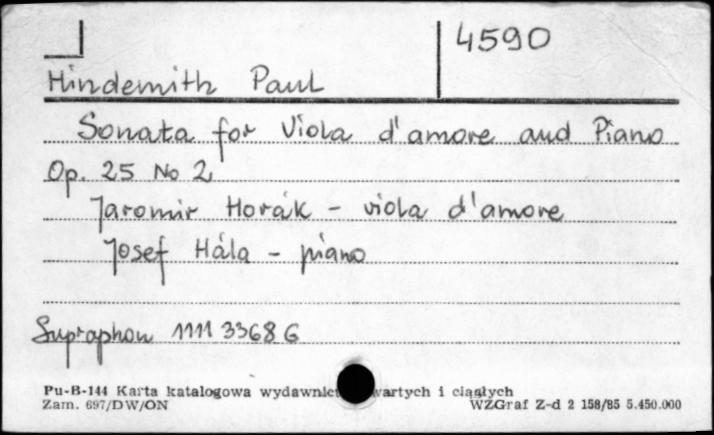 4590
Hindemith Paul
Sonata for Viola d'amore and Piano
Op. 25 No 2
Jaromir Horák - viola d'amore
Josef Hála - piano
Supraphon 1111 3368 G
Pu-B-144 Karta katalogowa wydawnict wartych i ciągłych
Zam. 697/DW/ON WZGraf Z-d 2 158/85 5.450.000